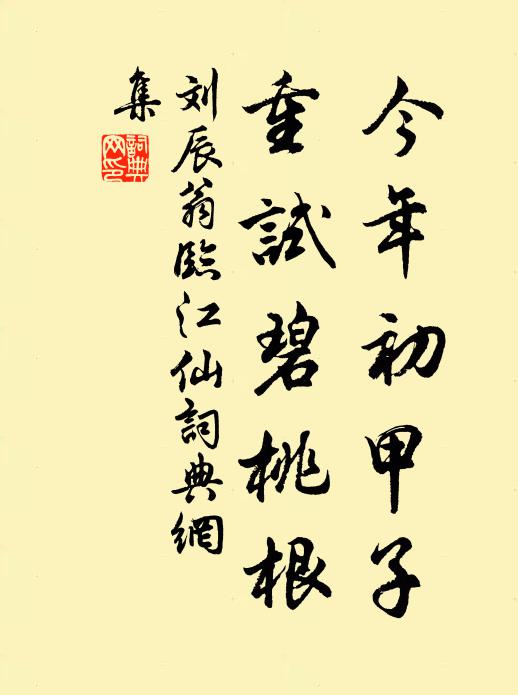 今年初甲子
重試碧桃根
刘辰翁臨江仙詞典網
集
詞典网